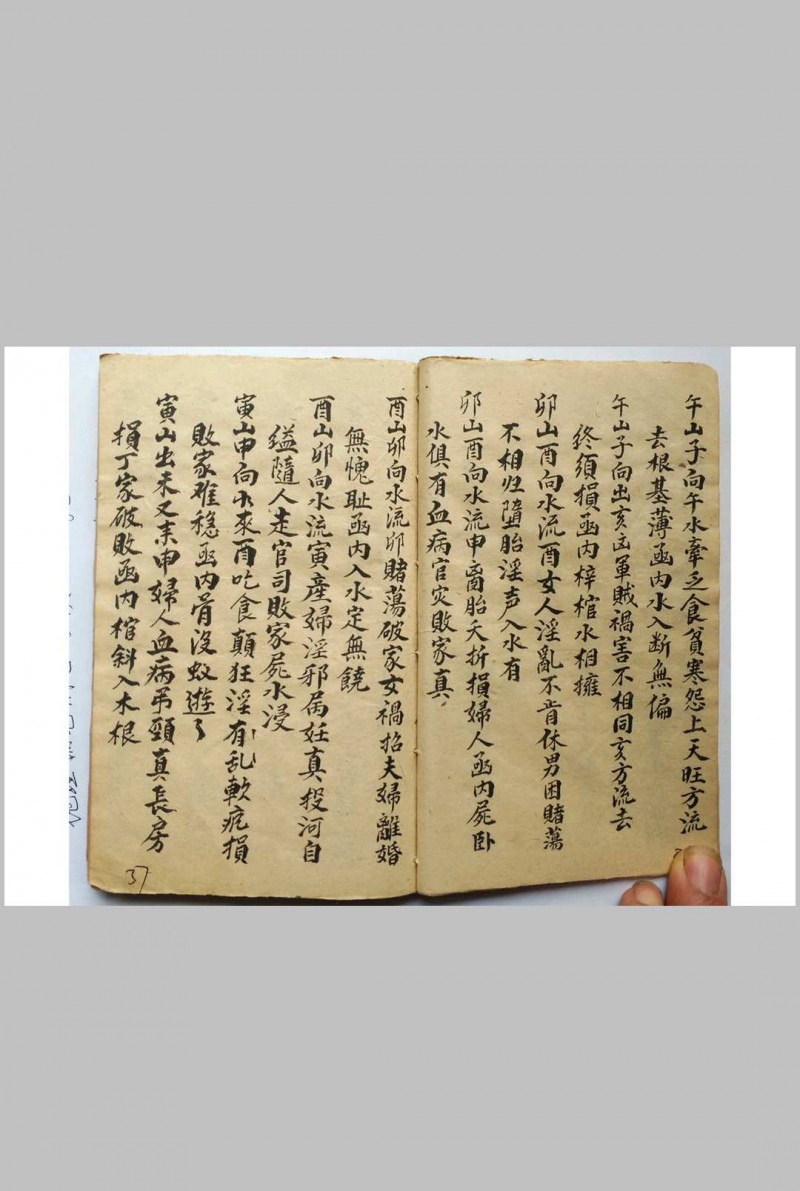 午山子向午水牽乏食貧寒怨上天旺方流
去根基薄函内水入断無偏
午山子向出亥凶軍賊禍害不相同亥方流去
終須損函内梓棺水相擁
卯山酉向水流酉女人淫亂不肯休男困賭蕩
不相归墮胎淫声入水有
卯山酉向水流申离胎夭折損婦人函内屍卧
水俱有血病官灾敗家真
酉山卯向水流卯賭蕩破家女禍招夫婦離婚
無愧耻函内入水定無饒
酉山卯向水流寅產婦淫邪屬妊真投河自
縊隨人走官司敗家屍水浸
寅山申向水來酉吃食顛狂淫有乱軟疪損
敗家难穩函内骨没蚁遊了
寅山出未又未申婦人血病吊頸真長房
損丁家破敗函内棺斜入木根
37